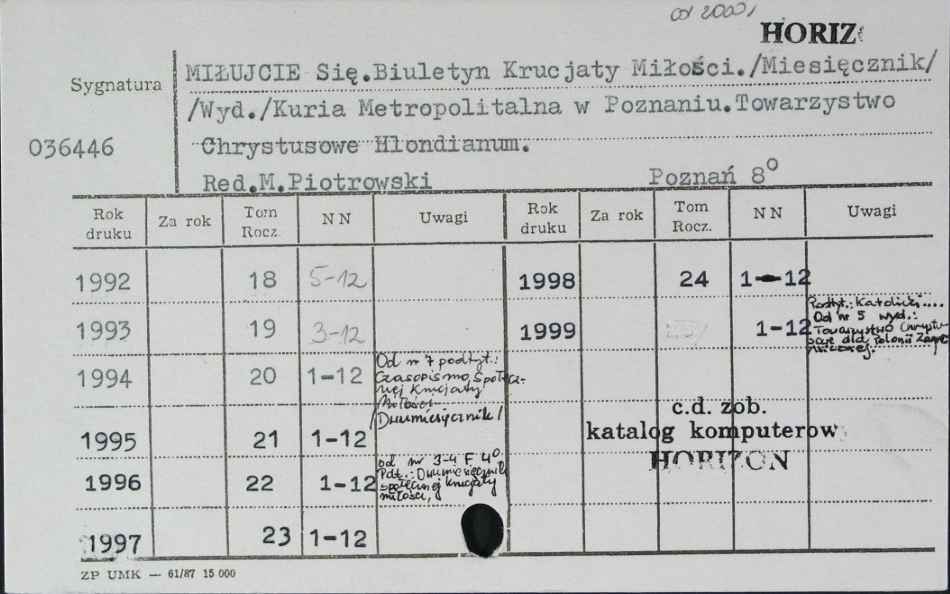 od 2000,
HORIZ
Sygnatura
036446
MIŁUJCIE Się.Biuletyn Krucjaty Miłości./Miesięcznik/
/Wyd./Kuria Metropolitalna w Poznaniu.Towarzystwo
Chrystusowe Hlondianum.
Red.M.Piotrowski Poznań 8°
Rok druku Za rok Tom Rocz. NN Uwagi Rok druku Za rok Tom Rocz. NN Uwagi
1992 18 5-12 1998 24 1-12
1993 19 3-12 1999 1-12 Podtyt.: Katolicki....
Od nr 5 wyd.:
Towarzystwo Chrystu-
sowe dla Polonii Zagra-
nicznej.
1994 20 1-12 Od nr 7 podtyt.:
Czasopismo Społecz-
nej Krucjaty
Miłości
/Dwumiesięcznik/
1995 21 1-12
1996 22 1-12 od nr 3-4 F. 4°.
Pdt.: Dwumiesięcznik
społecznej krucjaty
miłości,
1997 23 1-12
c.d. zob.
katalog komputerow
HORIZON
ZP UMK — 61/87 15 000